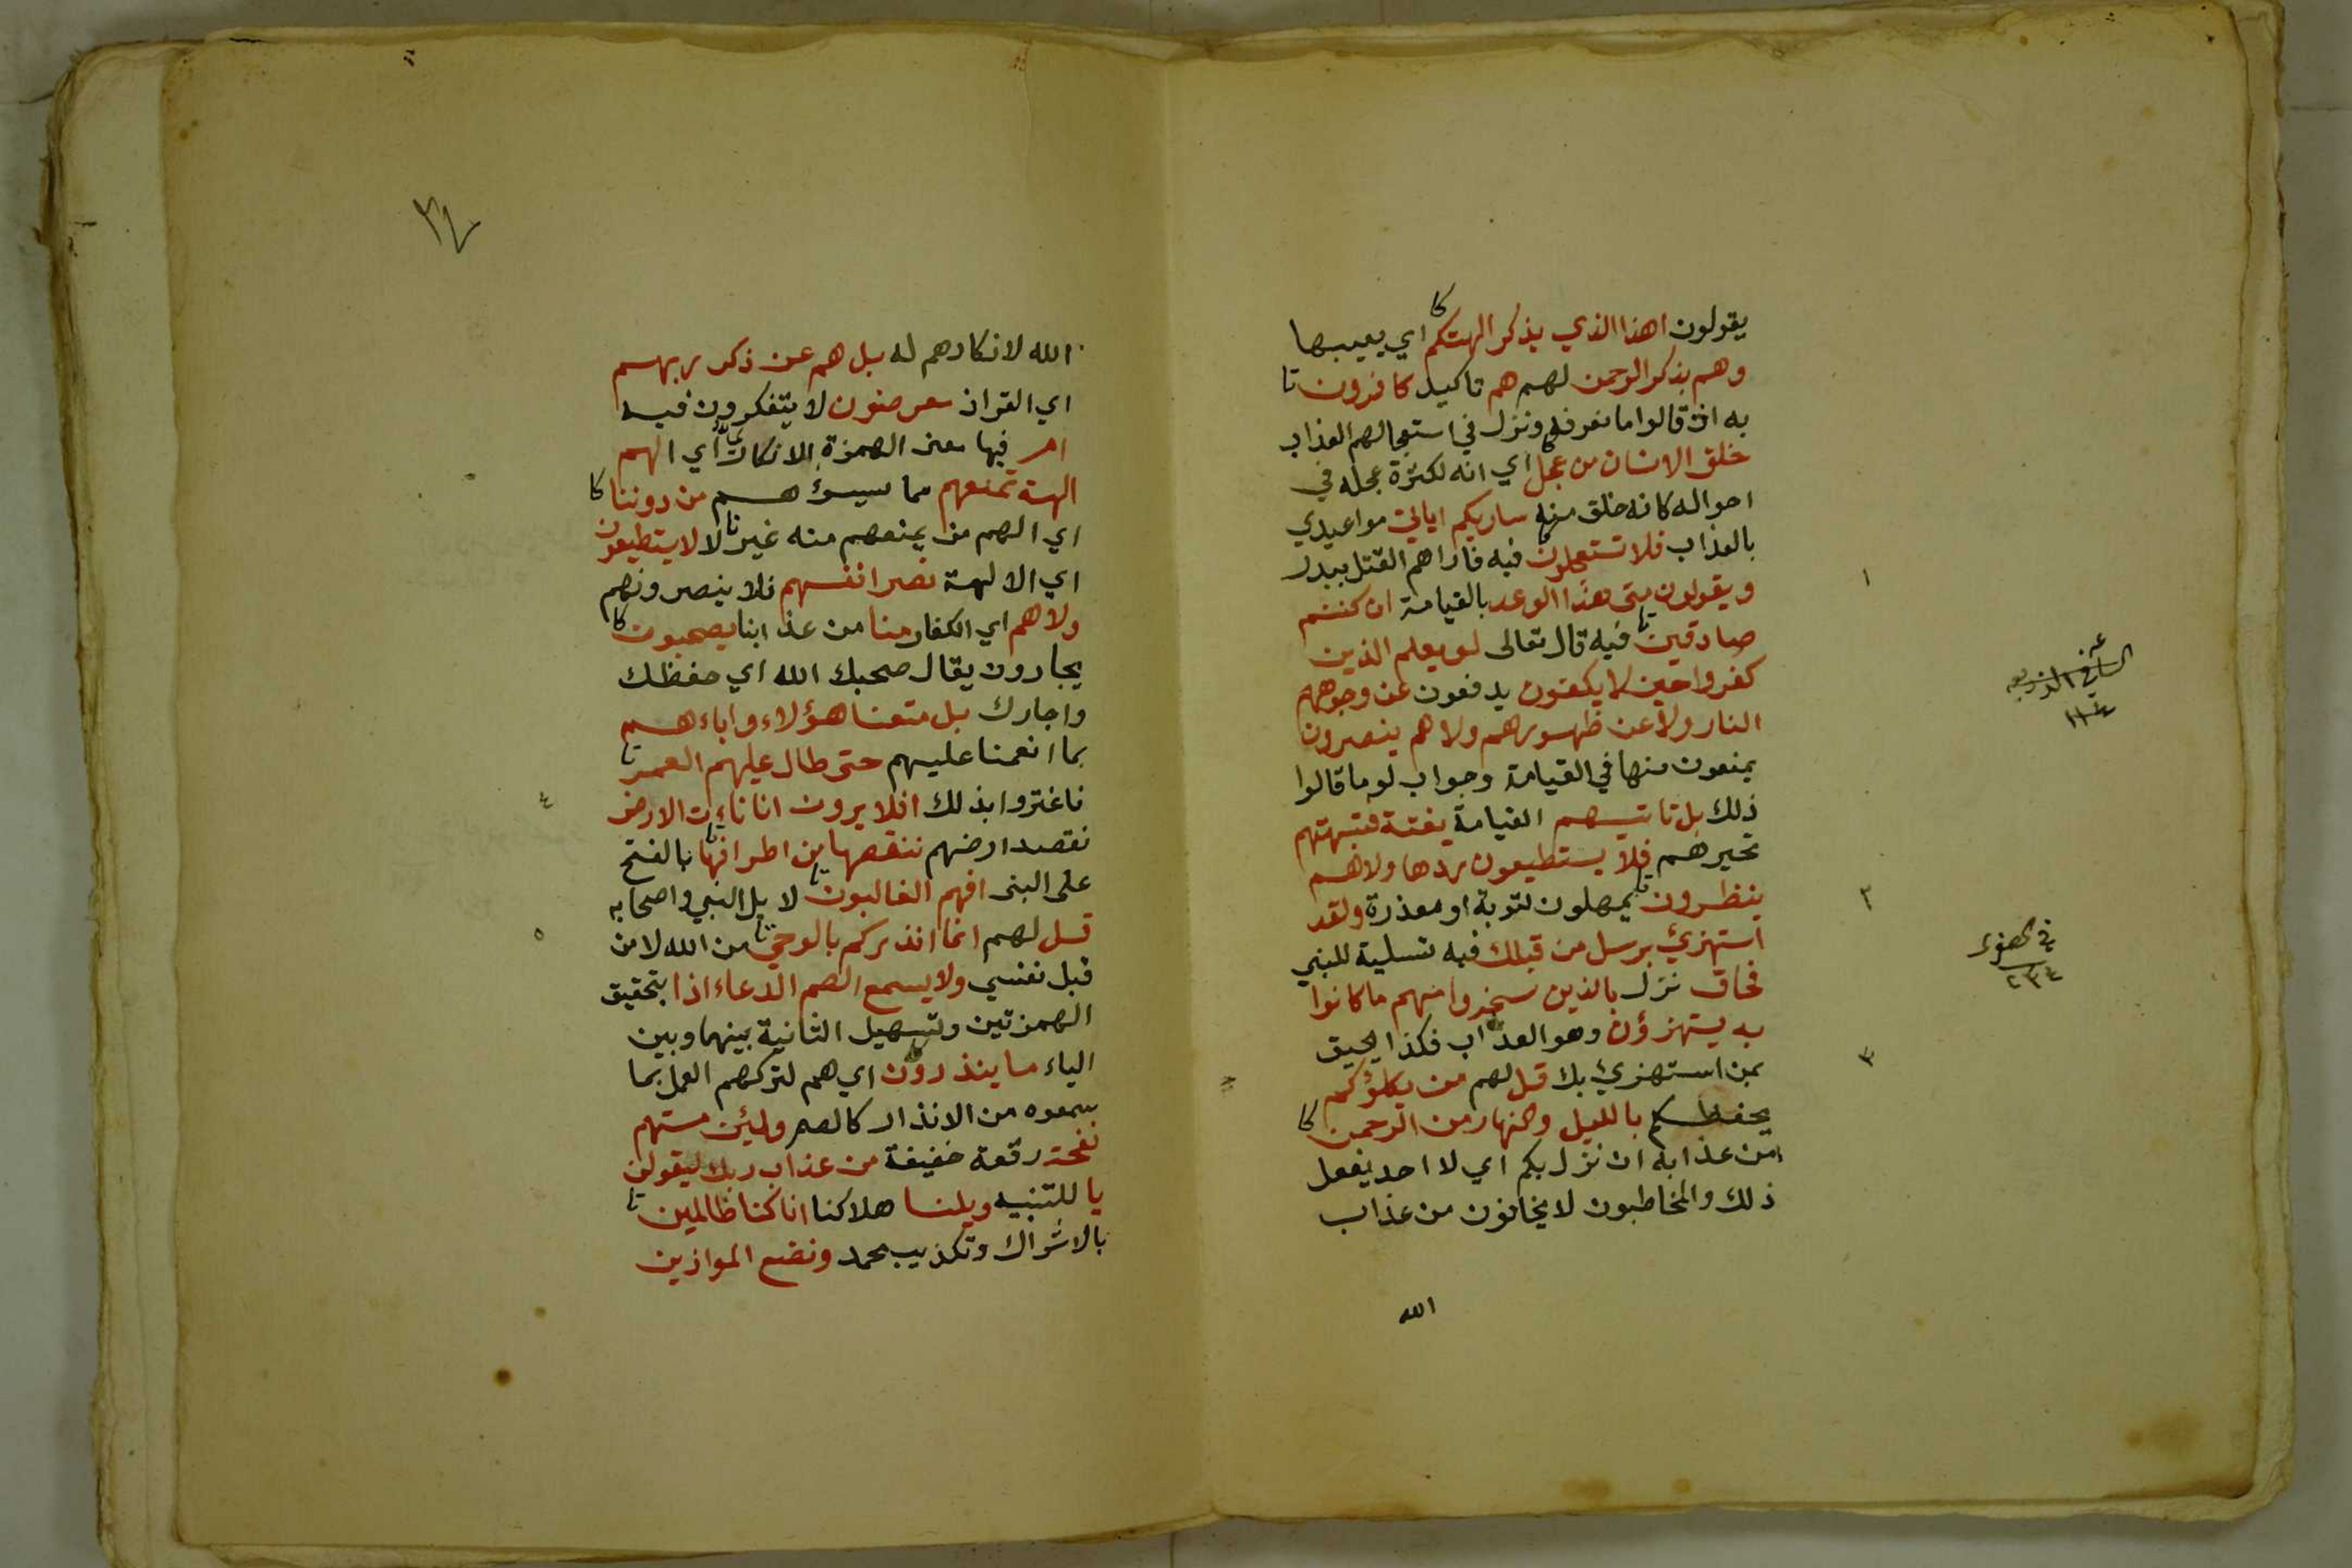 يقولون اهذا الذي يذكر الهتكم كا اي يعيبها
وهم بذكر الرحمن لهم هم تاكيد كافرون تا
به اذ قالوا ما نعرفه ونزل في استعجالهم العذاب
خلق الانسان من عجل كا اي انه لكثرة عجله في
احواله كانه خلق منه ساريكم اياتي مواعيدي
بالعذاب فلا تستعجلون كا فيه فاراهم القتل ببدر
ويقولون متى هذا الوعد بالقيامة ان كنتم
صادقين تا فيه قال تعالى لو يعلم الذين
كفروا حين لا يكفون يدفعون عن وجوههم
النار ولا عن ظهورهم ولا هم ينصرون
يمنعون منها في القيامة وجواب لو ما قالوا
ذلك بل تاتيهم القيامة بغتة فتبهتهم
تحيرهم فلا يستطيعون ردها ولا هم
ينظرون تا يمهلون لتوبة او معذرة ولقد
استهزئ برسل من قبلك فيه تسلية للنبي
فحاق نزل بالذين سخروا منهم ما كانوا
به يستهزؤن وهو العذاب فكذا يحيق
بمن استهزئ بك قل لهم من يكلؤكم
يحفظكم بالليل والنهار من الرحمن كا
من عذابه ان نزل بكم اي لا احد يفعل
ذلك والمخاطبون لا يخافون من عذاب
الله
١
٢
٣
٢٣٤
الله لانكارهم له بل هم عن ذكر ربهم
اي القران معرضون لا يتفكرون فيه
ام فيها معنى الهمزة الانكاري اي الهم
الهة تمنعهم مما يسوؤهم من دوننا كا
اي الهم من يمنعهم منه غيرنا لا لا يستطيعون
اي الالهة نصر انفسهم فلا ينصرونهم
ولا هم اي الكفار منا من عذابنا يصحبون كا
يجارون يقال صحبك الله اي حفظك
واجارك بل متعنا هؤلاء واباءهم
بما انعمنا عليهم حتى طال عليهم العمر تا
فاغتروا بذلك افلا يرون انا ناءت الارض
نقصد ارضهم ننقصها من اطرافها تا بالفتح
على النبى افهم الغالبون تا لا بل النبي واصحابه
قل لهم انما انذركم بالوحي تا من الله لا من
قبل نفسي ولا يسمع الصم الدعاء اذا بتحقيق
الهمزتين وتسهيل الثانية بينهما وبين
الياء ما ينذرون اي هم لتركهم العمل بما
سمعوه من الانذار كالصم ولئن مستهم
نفحة رقعة خفيفة من عذاب ربك ليقولن
يا للتنبيه ويلنا هلاكنا انا كنا ظالمين تا
بالاشراك وتكذيب محمد ونضع الموازين
٤
٥